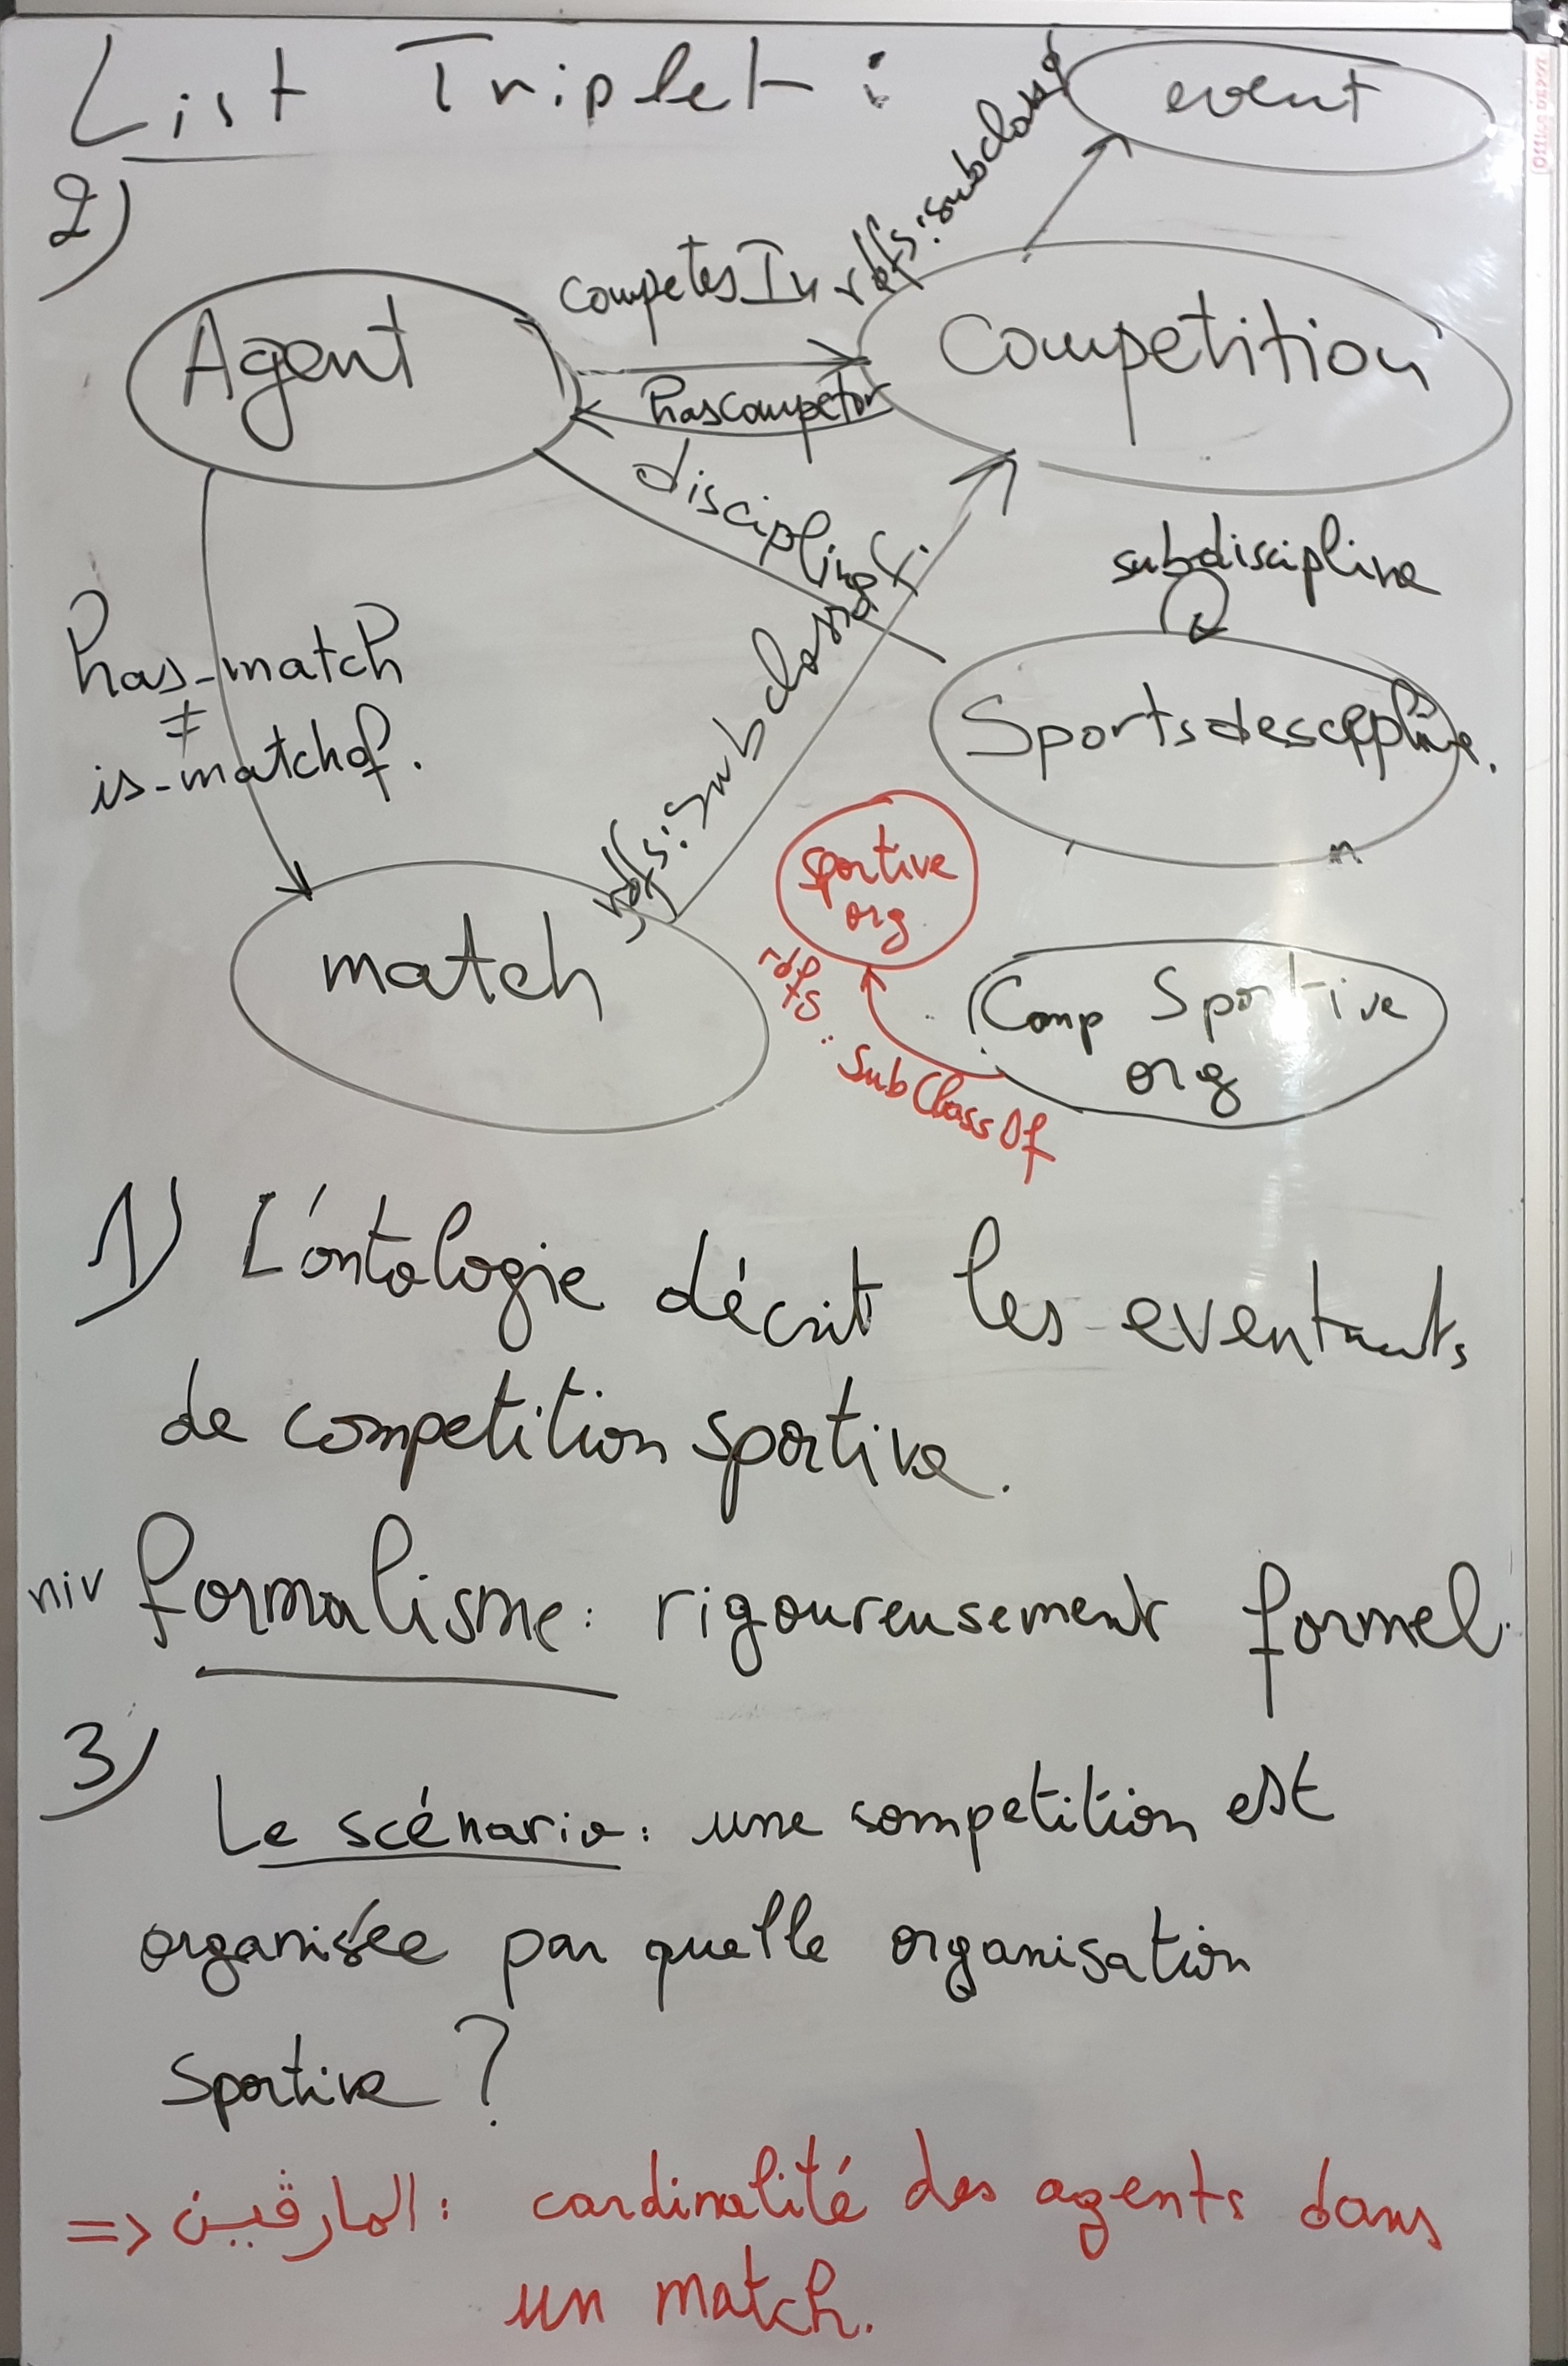 List Triplet :
event
2)
rdfs:subclassof
competesIn
Agent
Competition
hascompetor
discipline
subdiscipline
has-match
≠
is-matchof.
rdfs:subclassof.
sportive
org
match
rdfs: SubClassOf
Comp Sportive
org
1) L'ontologie décrit les eventants
de competition sportive.
niv formalisme: rigoureusement formel.
3)
Le scénario: une competition est
organisée par quelle organisation
Sportive ?
=> المارقين : cardinalité des agents dans
un match.